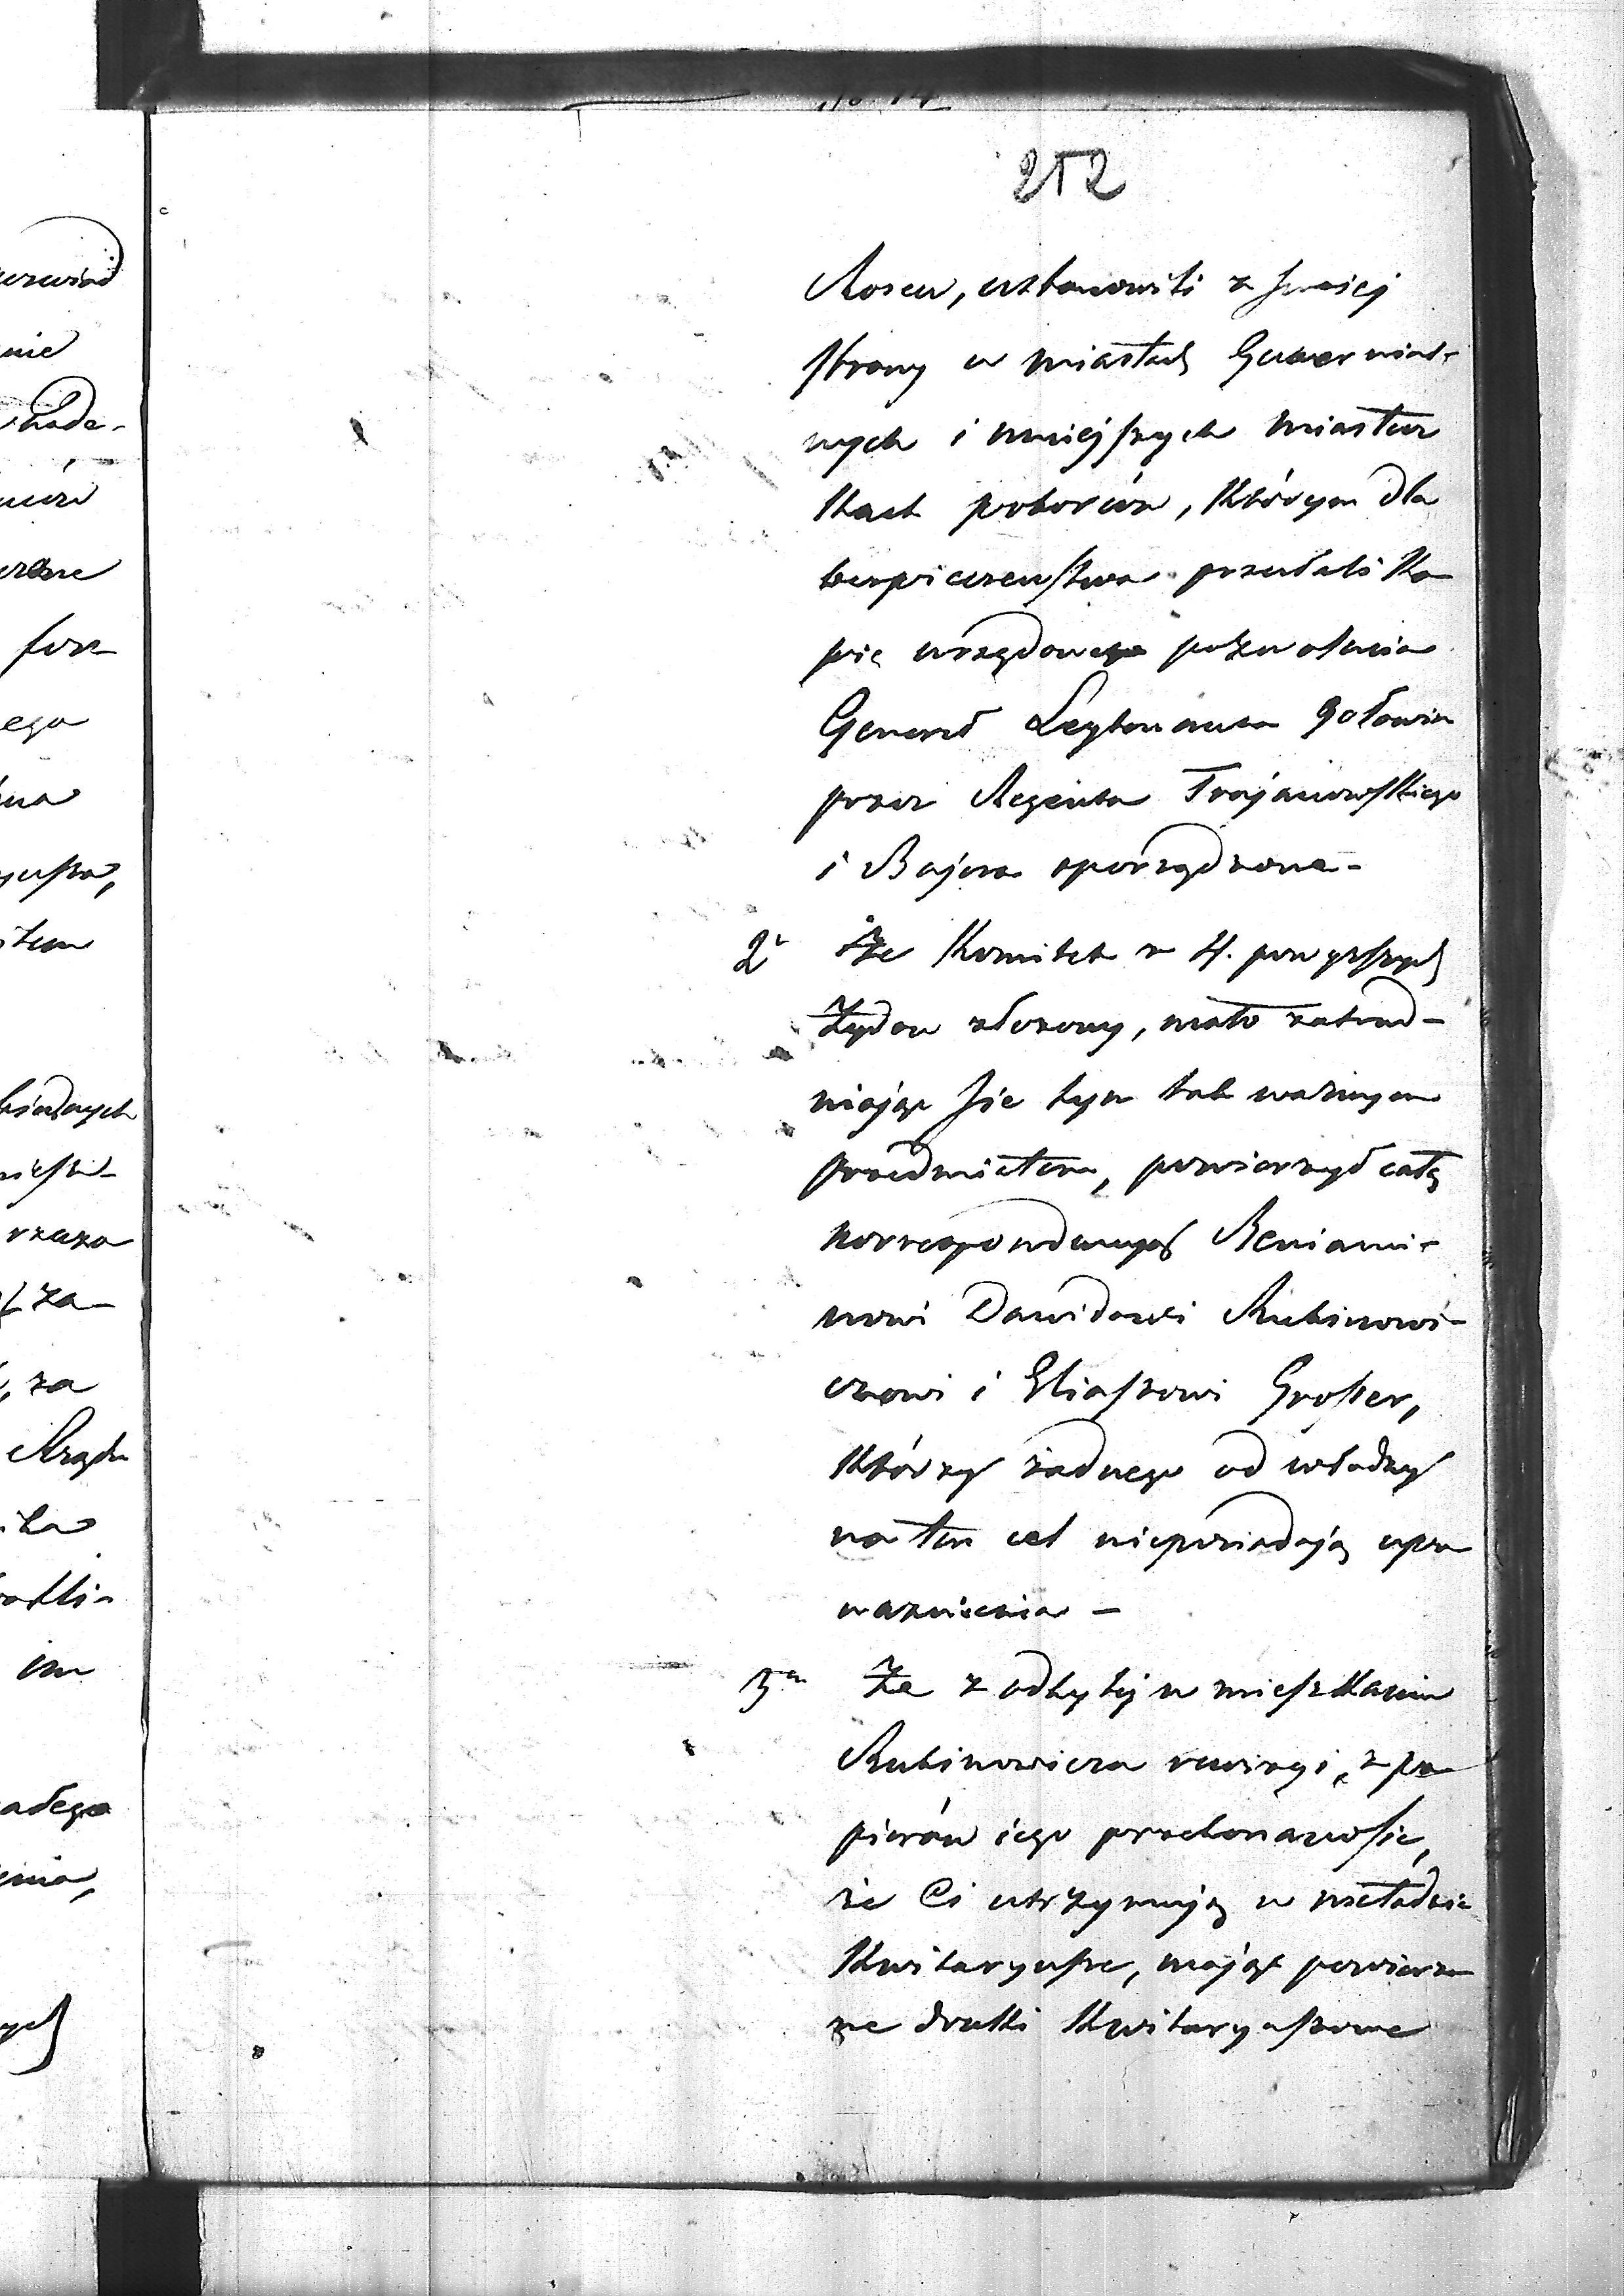 252
Rosen, ustanowili z swoiej
strony w miastach Guwernial-
nych i mnieyszych miastecz
kach poborców, którym dla
bezpieczenstwa przesłali ko
pię urzędowego pozwolenia
Generał Leytenanta Gołowin
przez Regenta Trojanowskiego
i Bajera sporządzone -
2° Że Komitet z 4. powyższych
Żydow złozony, mało zatrud-
niając sie tym tak ważnym
przedmiotem, powierzył całą
korrespondencyą Beniami-
nowi Dawidowi Rubinowi-
czowi i Eliaszowi Grosser,
którzy żadnego od władzy
na ten cel nieposiadają upo
ważnienia -
3° Że z odbytej w mieszkaniu
Rubinowicza rewizyi, z pa
pierów iego przekonano sie,
że Ci utrzymują w nieładzie
Kwitaryusze, mając powierzo
ne druki Kwitaryuszowe
wych
niesz-
rzaza
za-
, za
Rządu
im
ego
nie